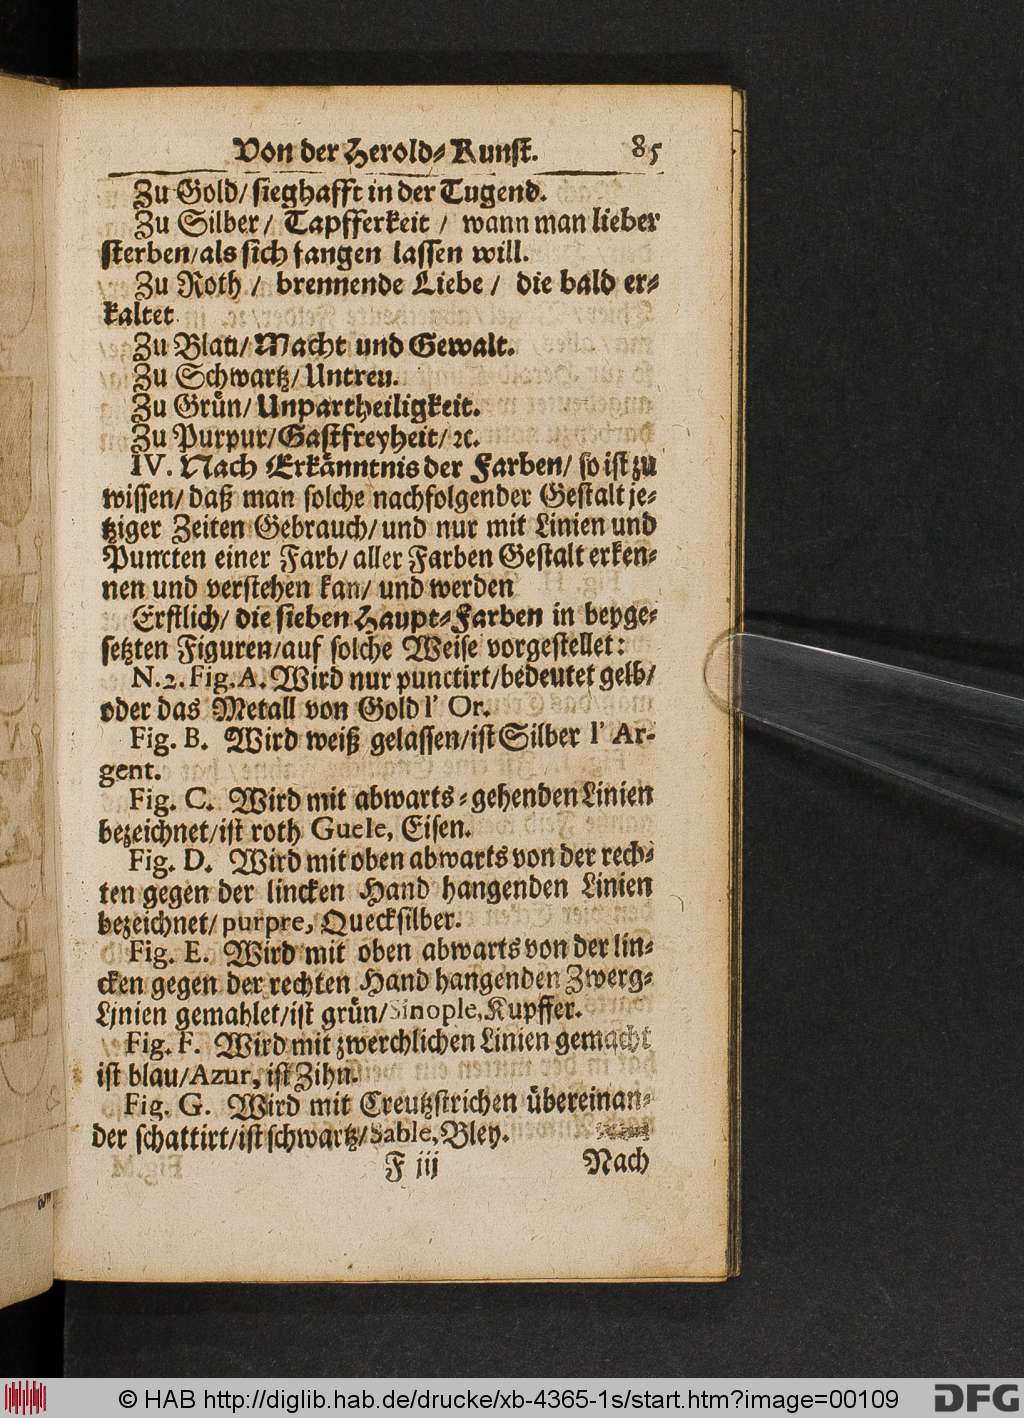 Von der Herold-Kunst. 85
Zu Gold/ sieghafft in der Tugend.
Zu Silber/ Tapfferkeit / wann man lieber
sterben/als sich fangen lassen will.
Zu Roth / brennende Liebe / die bald er-
kaltet.
Zu Blau/ Macht und Gewalt.
Zu Schwartz/ Untreu.
Zu Grün/ Unpartheiligkeit.
Zu Purpur/Gastfreyheit/ ꝛc.
IV. Nach Erkänntnis der Farben/ so ist zu
wissen/ daß man solche nachfolgender Gestalt je-
tziger Zeiten Gebrauch/ und nur mit Linien und
Puncten einer Farb/ aller Farben Gestalt erken-
nen und verstehen kan/ und werden
Erstlich/ die sieben Haupt-Farben in beyge-
setzten Figuren/auf solche Weise vorgestellet:
N. 2. Fig. A. Wird nur punctirt/bedeutet gelb/
oder das Metall von Gold l' Or.
Fig. B. Wird weiß gelassen/ist Silber l' Ar-
gent.
Fig. C. Wird mit abwarts-gehenden Linien
bezeichnet/ist roth Guele, Eisen.
Fig. D. Wird mit oben abwarts von der rech-
ten gegen der lincken Hand hangenden Linien
bezeichnet/ purpre, Quecksilber.
Fig. E. Wird mit oben abwarts von der lin-
cken gegen der rechten Hand hangenden Zwerg-
Linien gemahlet/ist grün/Sinople, Kupffer.
Fig. F. Wird mit zwerchlichen Linien gemacht
ist blau/Azur, ist Zihn.
Fig. G. Wird mit Creutzstrichen übereinan-
der schattirt/ist schwartz/Sable, Bley.
F iij Nach
© HAB http://diglib.hab.de/drucke/xb-4365-1s/start.htm?image=00109
DFG